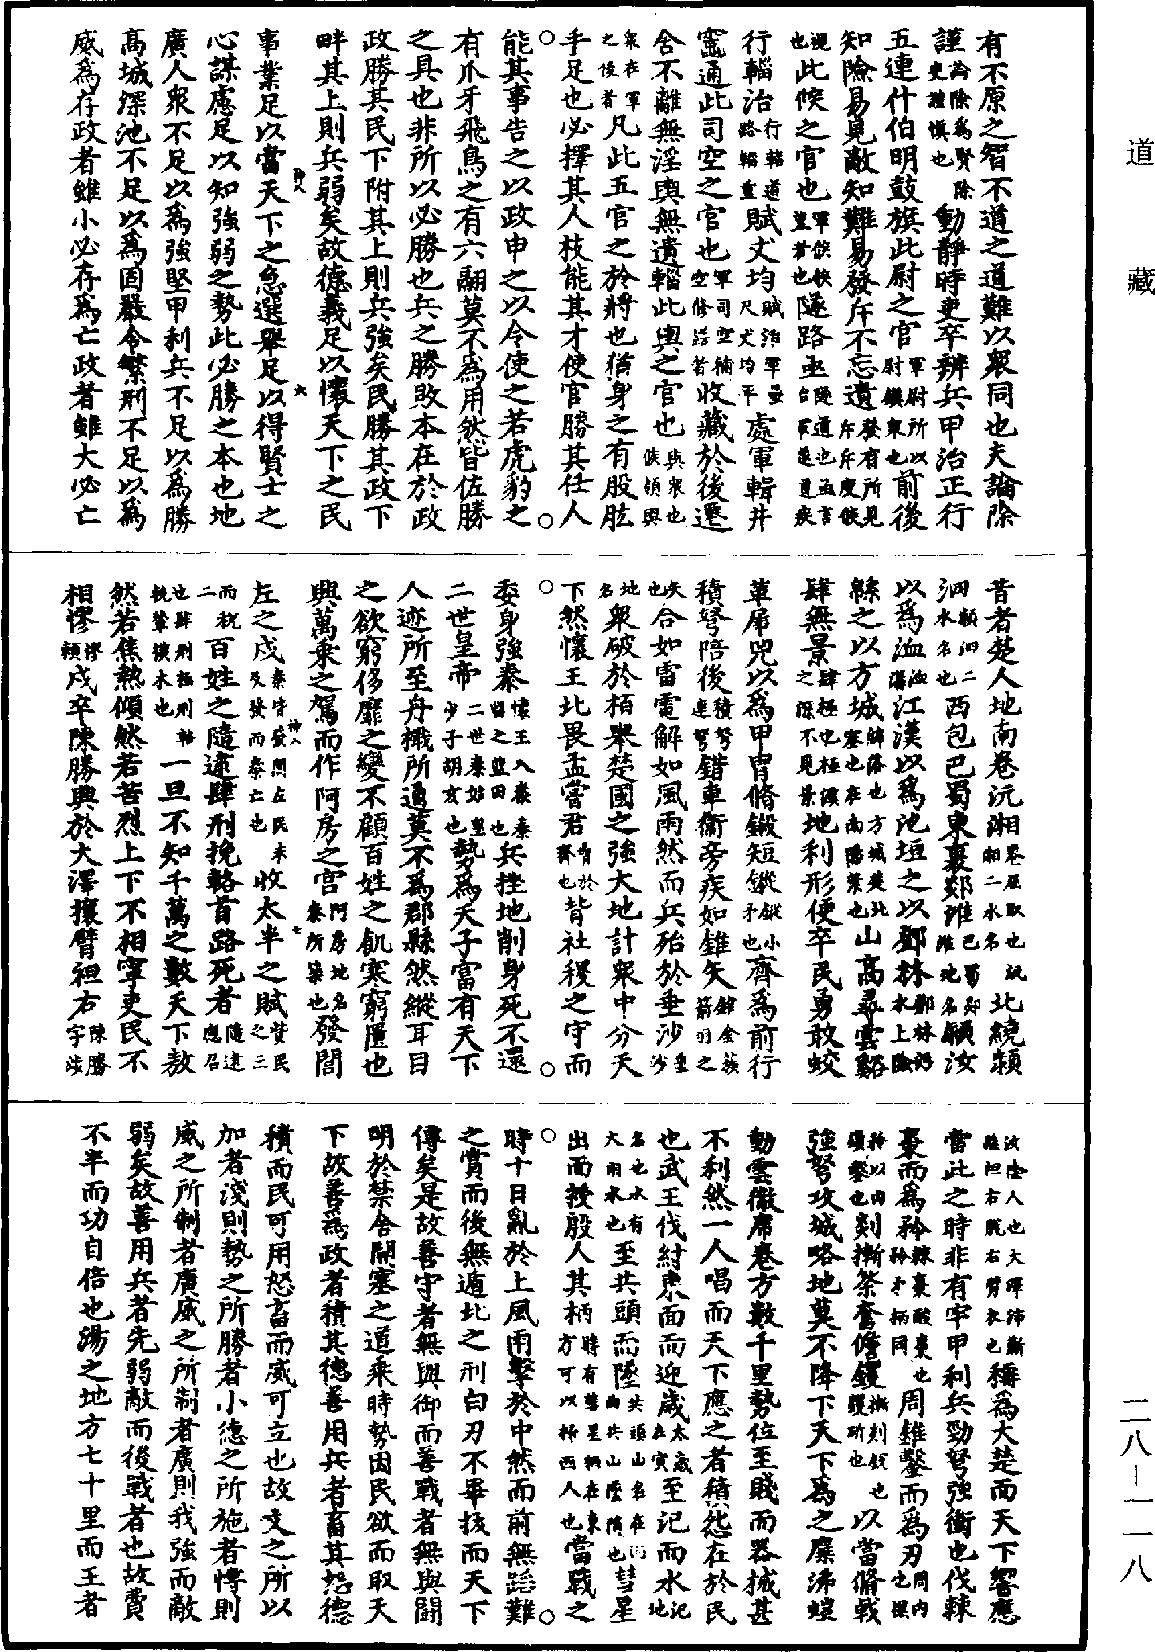 道藏
有不原之智不道之道難以衆同也夫論除
謹論除爲賢除吏謹慎也動靜時吏卒辨兵甲治正行
五連什伯明鼓旗此尉之官軍尉所以尉鎭衆也前後
知險易見敵知難易發斥不忘遺發有所見斥斥度候
視也此候之官也軍候候望者也隧路亟隧道也亟言治軍隧道疾
行輜治行輜道路輜重賦丈均賦治軍壘丈尺均平處軍輯井
竈通此司空之官也軍司空補空修浩者收藏於後遷
舍不離無淫輿無遺輜此輿之官也輿衆也候領輿
衆在軍之後者凡此五官之於將也猶身之有股肱
手足也必擇其人枝能其才使官勝其任人
能其事告之以政申之以令使之若虎豹之
有爪牙飛鳥之有六翮莫不爲用然皆佐勝
之具也非所以必勝也兵之勝敗本在於政
政勝其民下附其上則兵強矣民勝其政下
畔其上則兵弱矣故德義足以懷天下之民
事業足以當天下之急選舉足以得賢士之
心謀慮足以知強弱之勢此必勝之本也地
廣人衆不足以爲強堅甲利兵不足以爲勝
高城深池不足以爲固嚴令繁刑不足以爲
威爲存政者雖小必存爲亡政者雖大必亡
昔者楚人地南卷沅湘卷屈取也沅湘二水名北繞潁
泗潁泗二水名也西包巴蜀東裹郯淮巴蜀郯淮地名潁汝
以爲洫洫溝江漢以爲池垣之以鄧林鄧林沔水上險
緜之以方城緜落也方城楚北塞也在南陽葉也山高尋雲谿
肆無景肆極也極溪之深不見景地利形便卒民勇敢蛟
革犀兕以爲甲冑脩鎩短鏦鏦小矛也齊爲前行
積弩陪後積弩連弩錯車衞旁疾如錐矢錐金簇箭羽之
矢也合如雷電解如風雨然而兵殆於垂沙垂沙
地名衆破於栢舉楚國之強大地計衆中分天
下然懷王北畏孟嘗君背社稷之守而
委身強秦懷王入秦秦留之藍田也兵挫地削身死不還
二世皇帝二世秦始皇少子胡亥也勢爲天子富有天下
人迹所至舟檝所通莫不爲郡縣然縱耳目
之欲窮侈靡之變不顧百姓之飢寒窮匱也
興萬乘之駕而作阿房之宮阿房地名秦所築也發閭
左之戍秦皆發閭左民未及發而秦亡也收太半之賦貲民之三
而稅二百姓之隨逮肆刑挽輅首路死者隨逮應召
也肆刑極刑輅輓輦橫木也一旦不知千萬之數天下敖
然若焦熱傾然若苦烈上下不相寧吏民不
相憀憀賴戍卒陳勝興於大澤攘臂袒右陳勝字涉
汝陰人也大澤沛蘄縣袒右脫右臂衣也稱爲大楚而天下響應
當此之時非有牢甲利兵勁弩強衝也伐棘
棗而爲矜棘棗酸棗也矜矛柄同周錐鑿而爲刃周內也撰
矜以內鑽鑿也剡摲筡奮儋钁摲剡銳也钁斫也以當脩戟
強弩攻城略地莫不降下天下爲之麋沸螘
動雲徹席卷方數千里勢位至賤而器械甚
不利然一人唱而天下應之者積怨在於民
也武王伐紂東面而迎歲太歲在寅至記而水記地
名也水有大雨水也至共頭而墜共頭山名在河曲共山墜隋也彗星
出而授殷人其柄時有彗星柄在東方可以掃西人也當戰之
時十日亂於上風雨擊於中然而前無蹈難
之賞而後無遁北之刑白刃不畢拔而天下
傳矣是故善守者無與御而善戰者無與鬭
明於禁舍開塞之道乘時勢因民欲而取天
下故善爲政者積其德善用兵者畜其怒德
積而民可用怒畜而威可立也故文之所以
加者淺則勢之所勝者小德之所施者博則
威之所制者廣威之所制者廣則我強而敵
弱矣故善用兵者先弱敵而後戰者也故費
不半而功自倍也湯之地方七十里而王者
二八—一一八